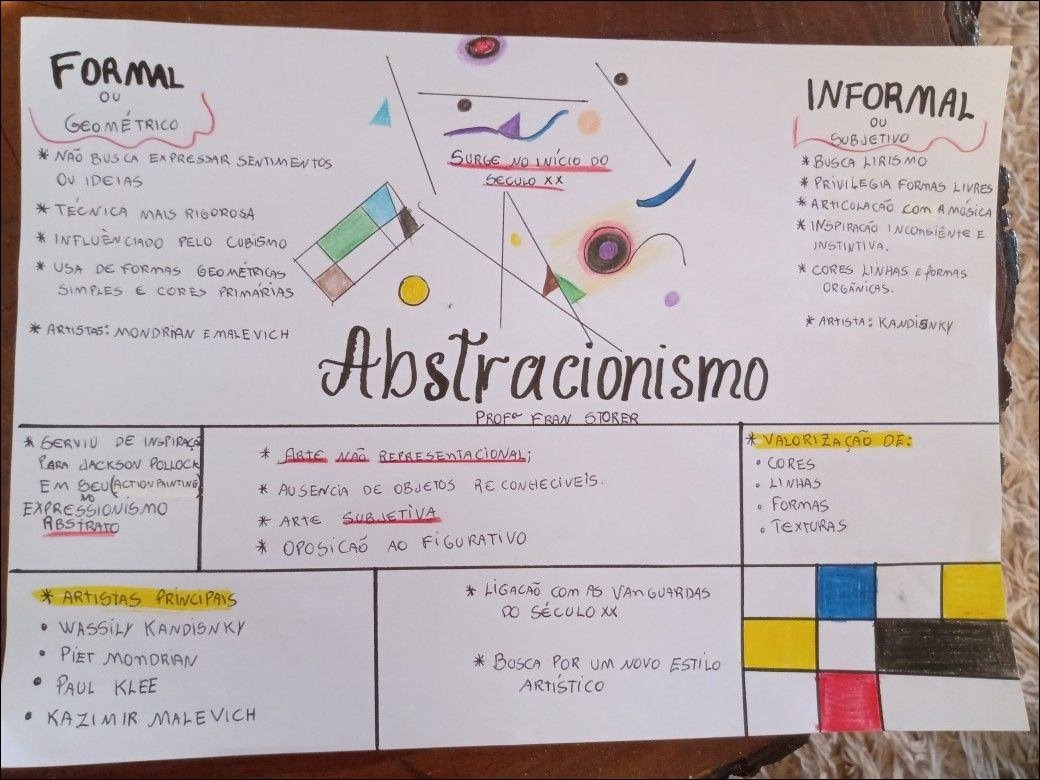 FORMAL
OU
GEOMÉTRICO
* NÃO BUSCA EXPRESSAR SENTIMENTOS
OU IDEIAS
* TÉCNICA MAIS RIGOROSA
* INFLUÊNCIADO PELO CUBISMO
* USA DE FORMAS GEOMÉTRICAS
SIMPLES E CORES PRIMÁRIAS
* ARTISTAS: MONDRIAN E MALEVICH
SURGE NO INÍCIO DO
SÉCULO XX
INFORMAL
OU
SUBJETIVO
* BUSCA LIRISMO
* PRIVILEGIA FORMAS LIVRES
* ARTICOLAÇÃO COM A MÚSICA
* INSPIRAÇÃO INCONSIÊNTE E
INSTINTIVA.
* CORES LINHAS E FORMAS
ORGÂNICAS.
* ARTISTA: KANDISNKY
Abstracionismo
PROFª FRAN STORER
* SERVIU DE INSPIRAÇÃO
PARA JACKSON POLLOCK
EM SEU (ACTION PAINTING)
NO
EXPRESSIONISMO
ABSTRATO
* ARTE NÃO REPRESENTACIONAL;
* AUSENCIA DE OBJETOS RECONHECIVEIS.
* ARTE SUBJETIVA
* OPOSICÃO AO FIGURATIVO
* VALORIZAÇÃO DE:
• CORES
• LINHAS
• FORMAS
• TEXTURAS
* ARTISTAS PRINCIPAIS
• WASSÍLY KANDISNKY
• PIET MONDRIAN
• PAUL KLEE
• KAZIMIR MALEVICH
* LIGACÃO COM AS VANGUARDAS
DO SÉCULO XX
* BUSCA POR UM NOVO ESTILO
ARTÍSTICO